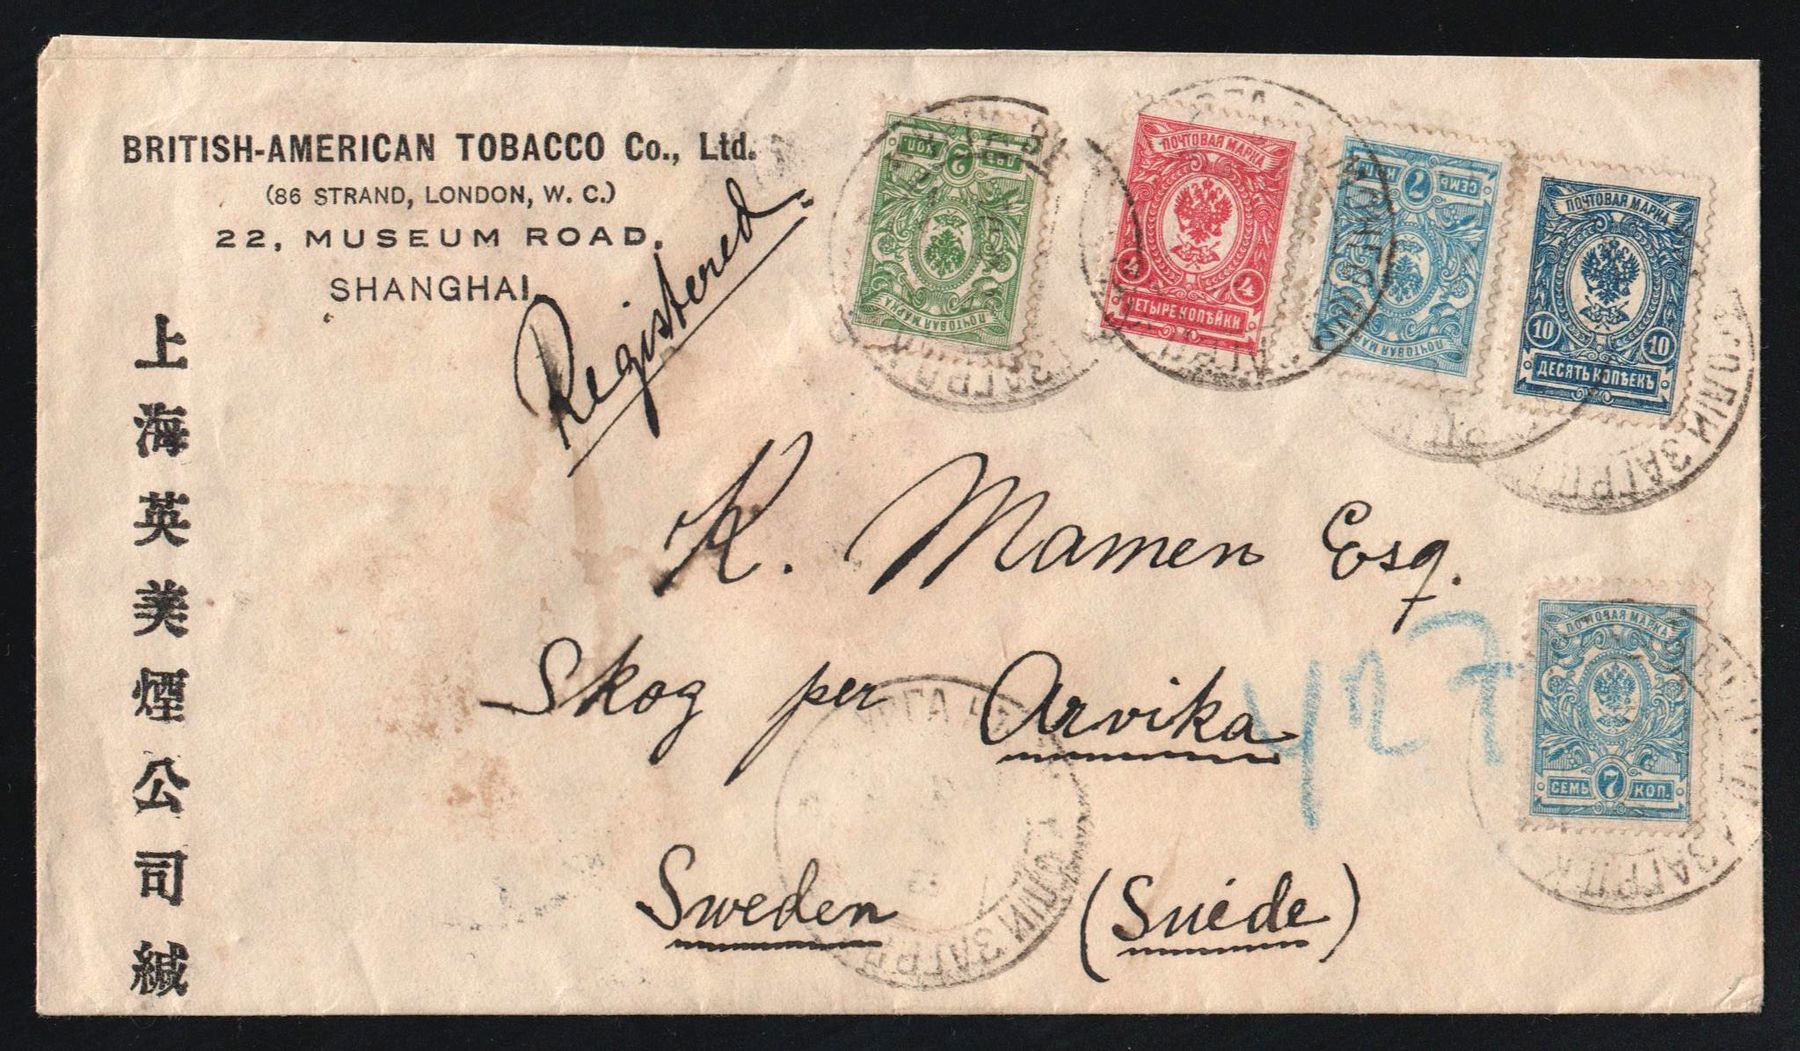 BRITISH-AMERICAN TOBACCO Co., Ltd.
(86 STRAND, LONDON, W. C.)
22, MUSEUM ROAD.
SHANGHAI.
上海英美煙公司緘
Registered
ПОЧТОВАЯ МАРКА
2 КОП.
ПОЧТОВАЯ МАРКА
4 4
ЧЕТЫРЕ КОПѢЙКИ
ПОЧТОВАЯ МАРКА
СЕМЬ 7 КОП.
ПОЧТОВАЯ МАРКА
10 10
ДЕСЯТЬ КОПѢЕКЪ
K. Mamen Esq.
Skog per Arvika
Sweden (Suéde)
427
ПОЧТОВАЯ МАРКА
СЕМЬ 7 КОП.
УРГА